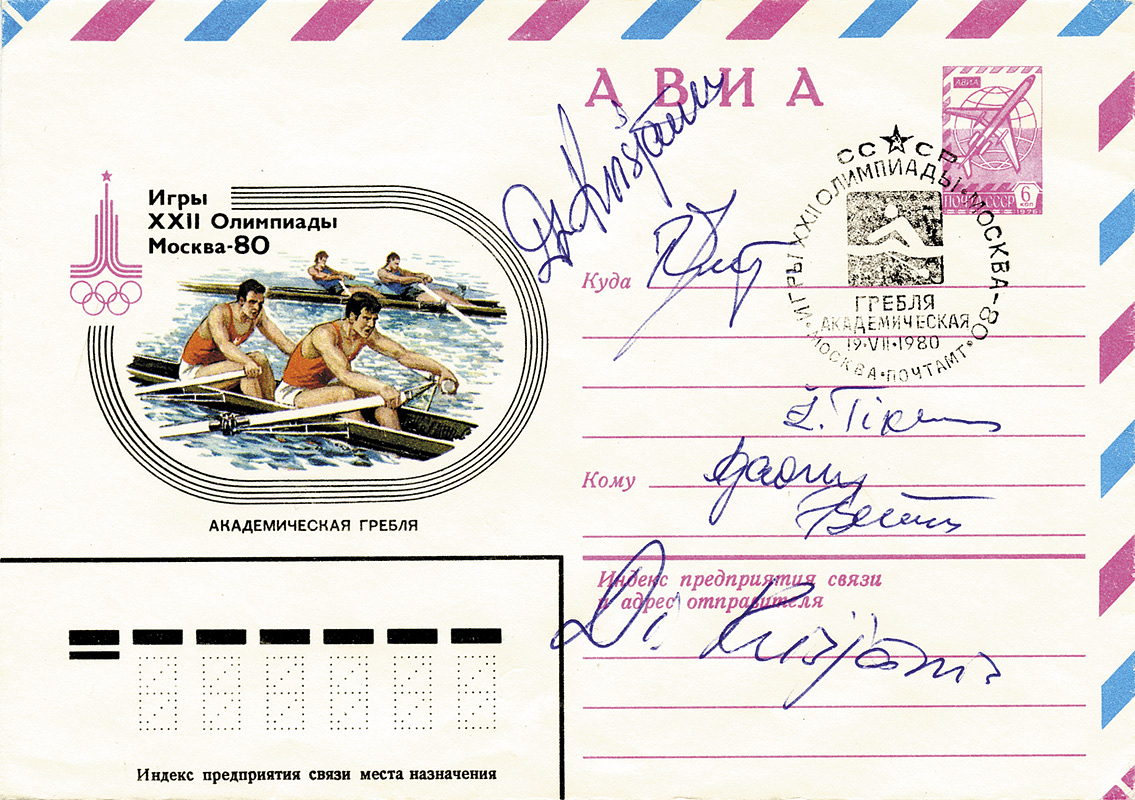 АВИА
АВИА
ПОЧТА СССР
6
коп
1978
Игры
XXII Олимпиады
Москва-80
АКАДЕМИЧЕСКАЯ ГРЕБЛЯ
СССР
ИГРЫ XXII ОЛИМПИАДЫ • МОСКВА-80
ГРЕБЛЯ
АКАДЕМИЧЕСКАЯ
19·VII·1980
МОСКВА•ПОЧТАМТ
Куда
Ž. Tikmers
Кому
Индекс предприятия связи
и адрес отправителя
Di. Krisjanis
Индекс предприятия связи места назначения